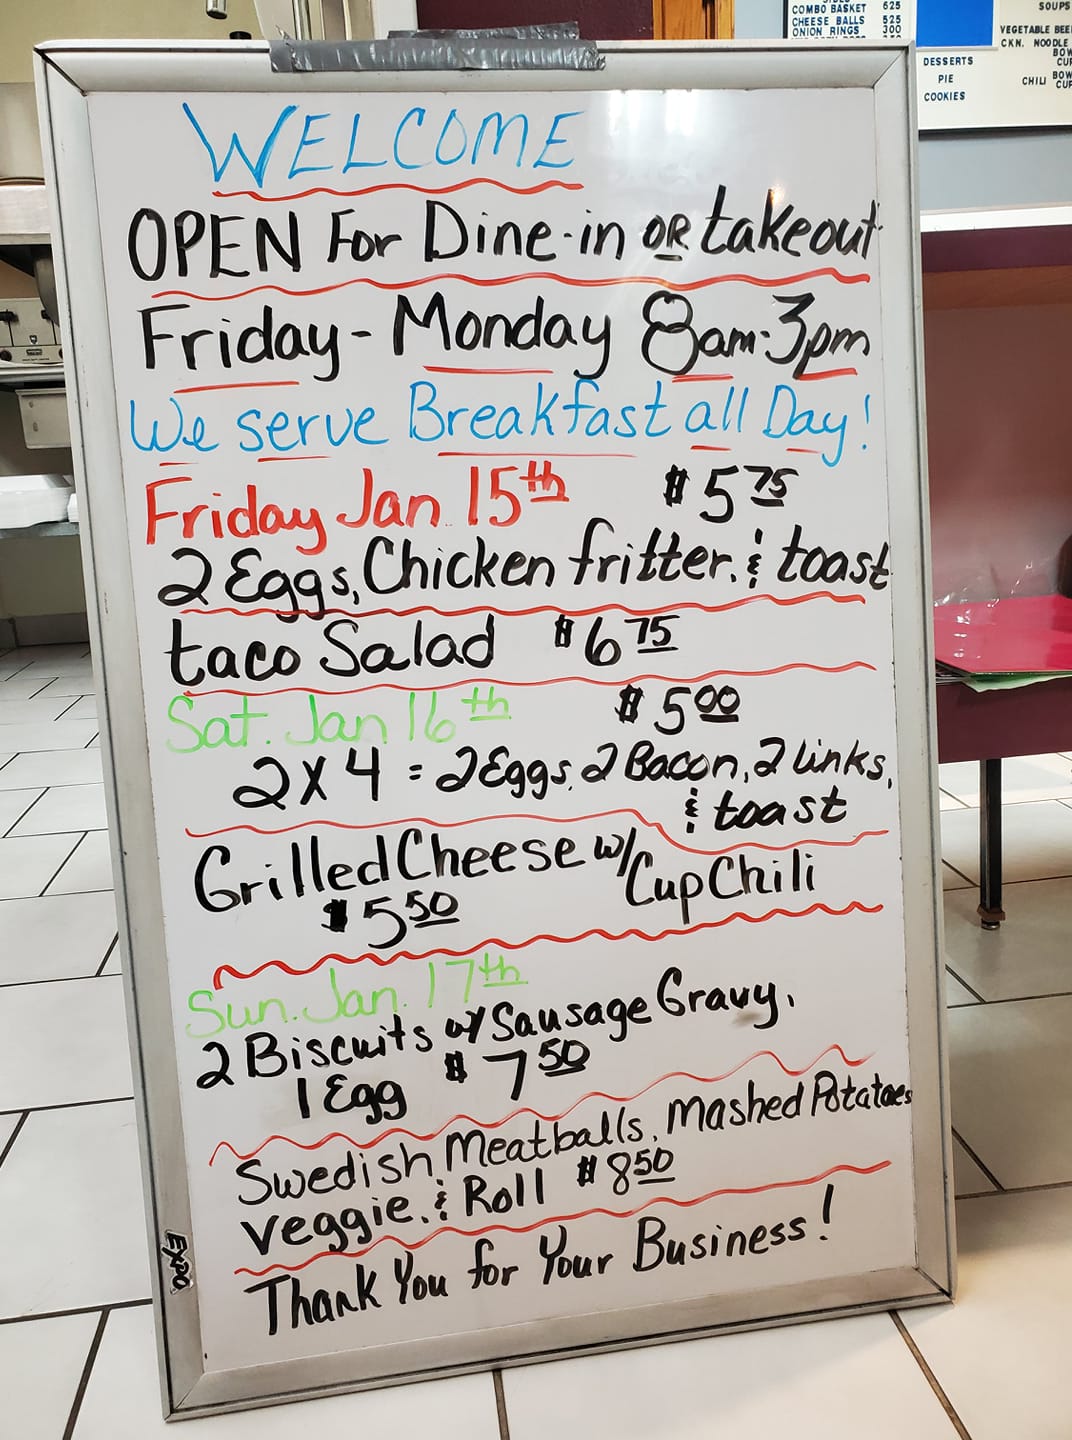 WELCOME
OPEN For Dine-in OR takeout
Friday - Monday 8am-3pm
We serve Breakfast all Day!
Friday Jan. 15th $5 75
2 Eggs, Chicken fritter, & toast
taco Salad $6 75
Sat. Jan 16th $5 00
2 X 4 = 2 Eggs, 2 Bacon, 2 Links,
& toast
Grilled Cheese w/ Cup Chili
$5 50
Sun. Jan. 17th
2 Biscuits w/ Sausage Gravy,
1 Egg $7 50
Swedish Meatballs, Mashed Potatoes
veggie, & Roll $8 50
Thank You for Your Business!
EXPO
COMBO BASKET 625
CHEESE BALLS 525
ONION RINGS 300
DESSERTS
PIE
COOKIES
SOUPS
VEGETABLE BEE
CKN. NOODLE
BOW
CUP
CHILI BOW
CUP